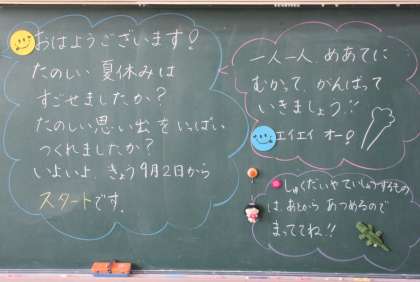 おはようございます!
たのしい 夏休みは
すごせましたか?
たのしい思い出をいっぱい
つくれましたか?
いよいよ きょう9月2日から
スタートです。
一人一人、めあてに
むかって、がんばって
いきましょう!!
エイエイ オー!
しゅくだいや ていしゅつするもの
は、あとから あつめるので
まっててね!!